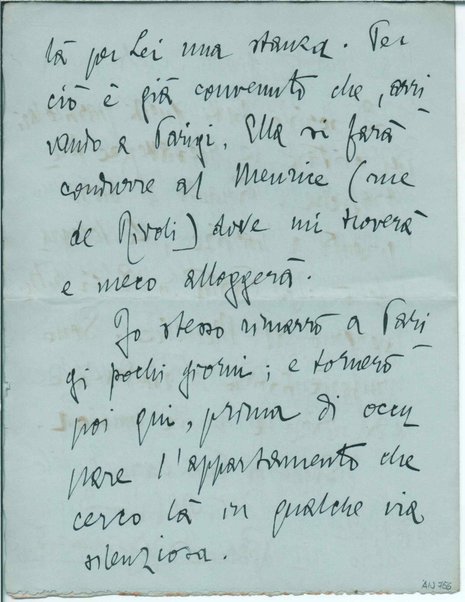 là per Lei una stanza. Per
ciò è già convenuto che, arri
vando a Parigi, Ella si farà
condurre al Meurice (rue
de Rivoli) dove mi troverà
e meco alloggerà.
Io stesso rimarrò a Pari
gi pochi giorni; e tornerò
poi qui, prima di occu
pare l'appartamento che
cerco là in qualche via
silenziosa.
AN 766